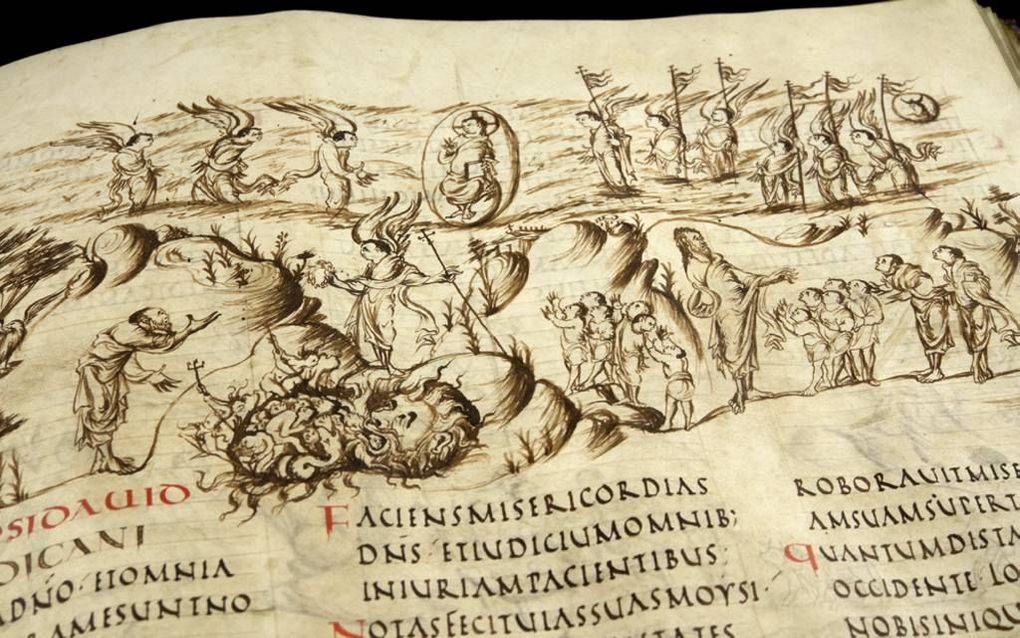 SIDAUID
DICANI
ADNO·ETOMNIA
AMESUNTNO
FACIENSMISERICORDIAS
DNS·ETIUDICIUMOMNIB;
INIURIAMPACIENTIBUS:
NOTASFECITUIASSUASMOYSI·
TATES
ROBORAUITMISE
AMSUAMSUPERT
QUANTUMDISTA
OCCIDENTE·LO
NOBISINIQU